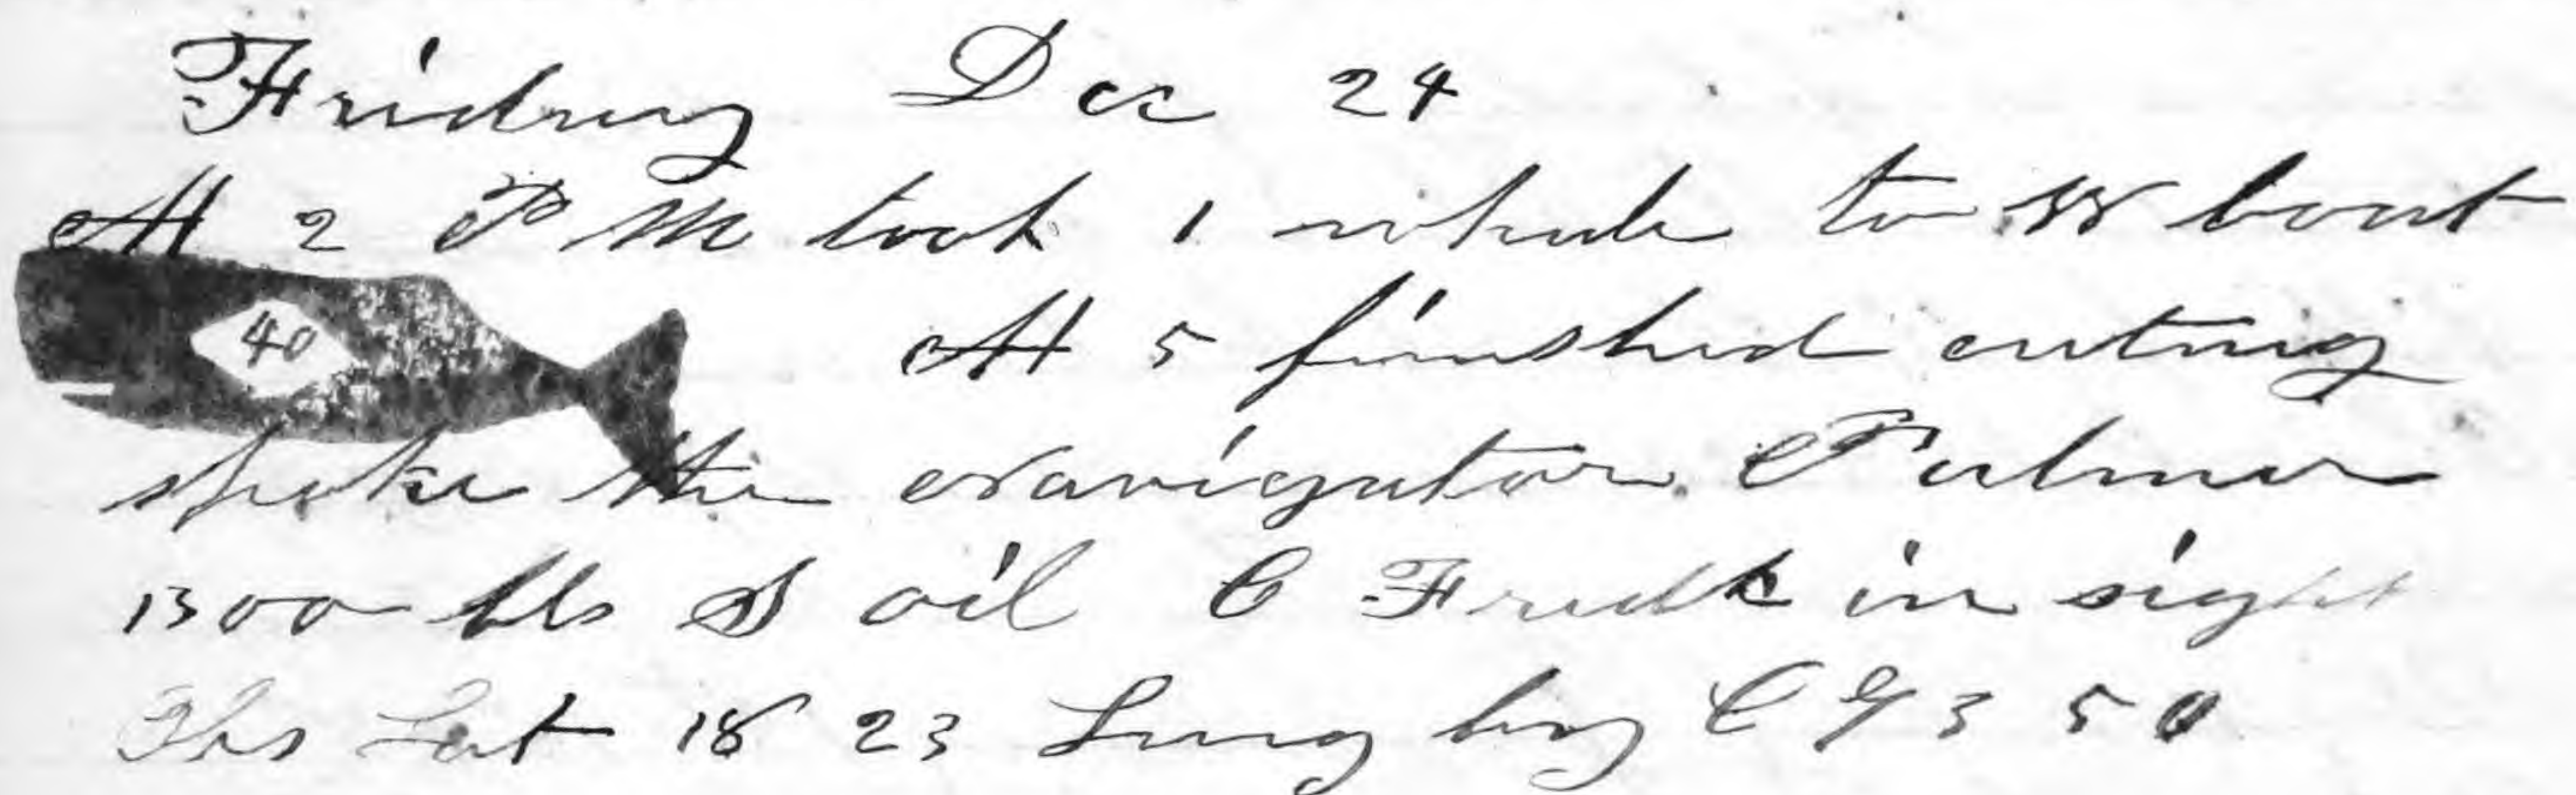 Friday Dec 24
At 2 PM took 1 whale to W boat
40
At 5 finished cuting
spoke the Navigator Palmer
1300 bls S oil C Fredk in sight
Obs Lat 18 23 Long by C 93 50